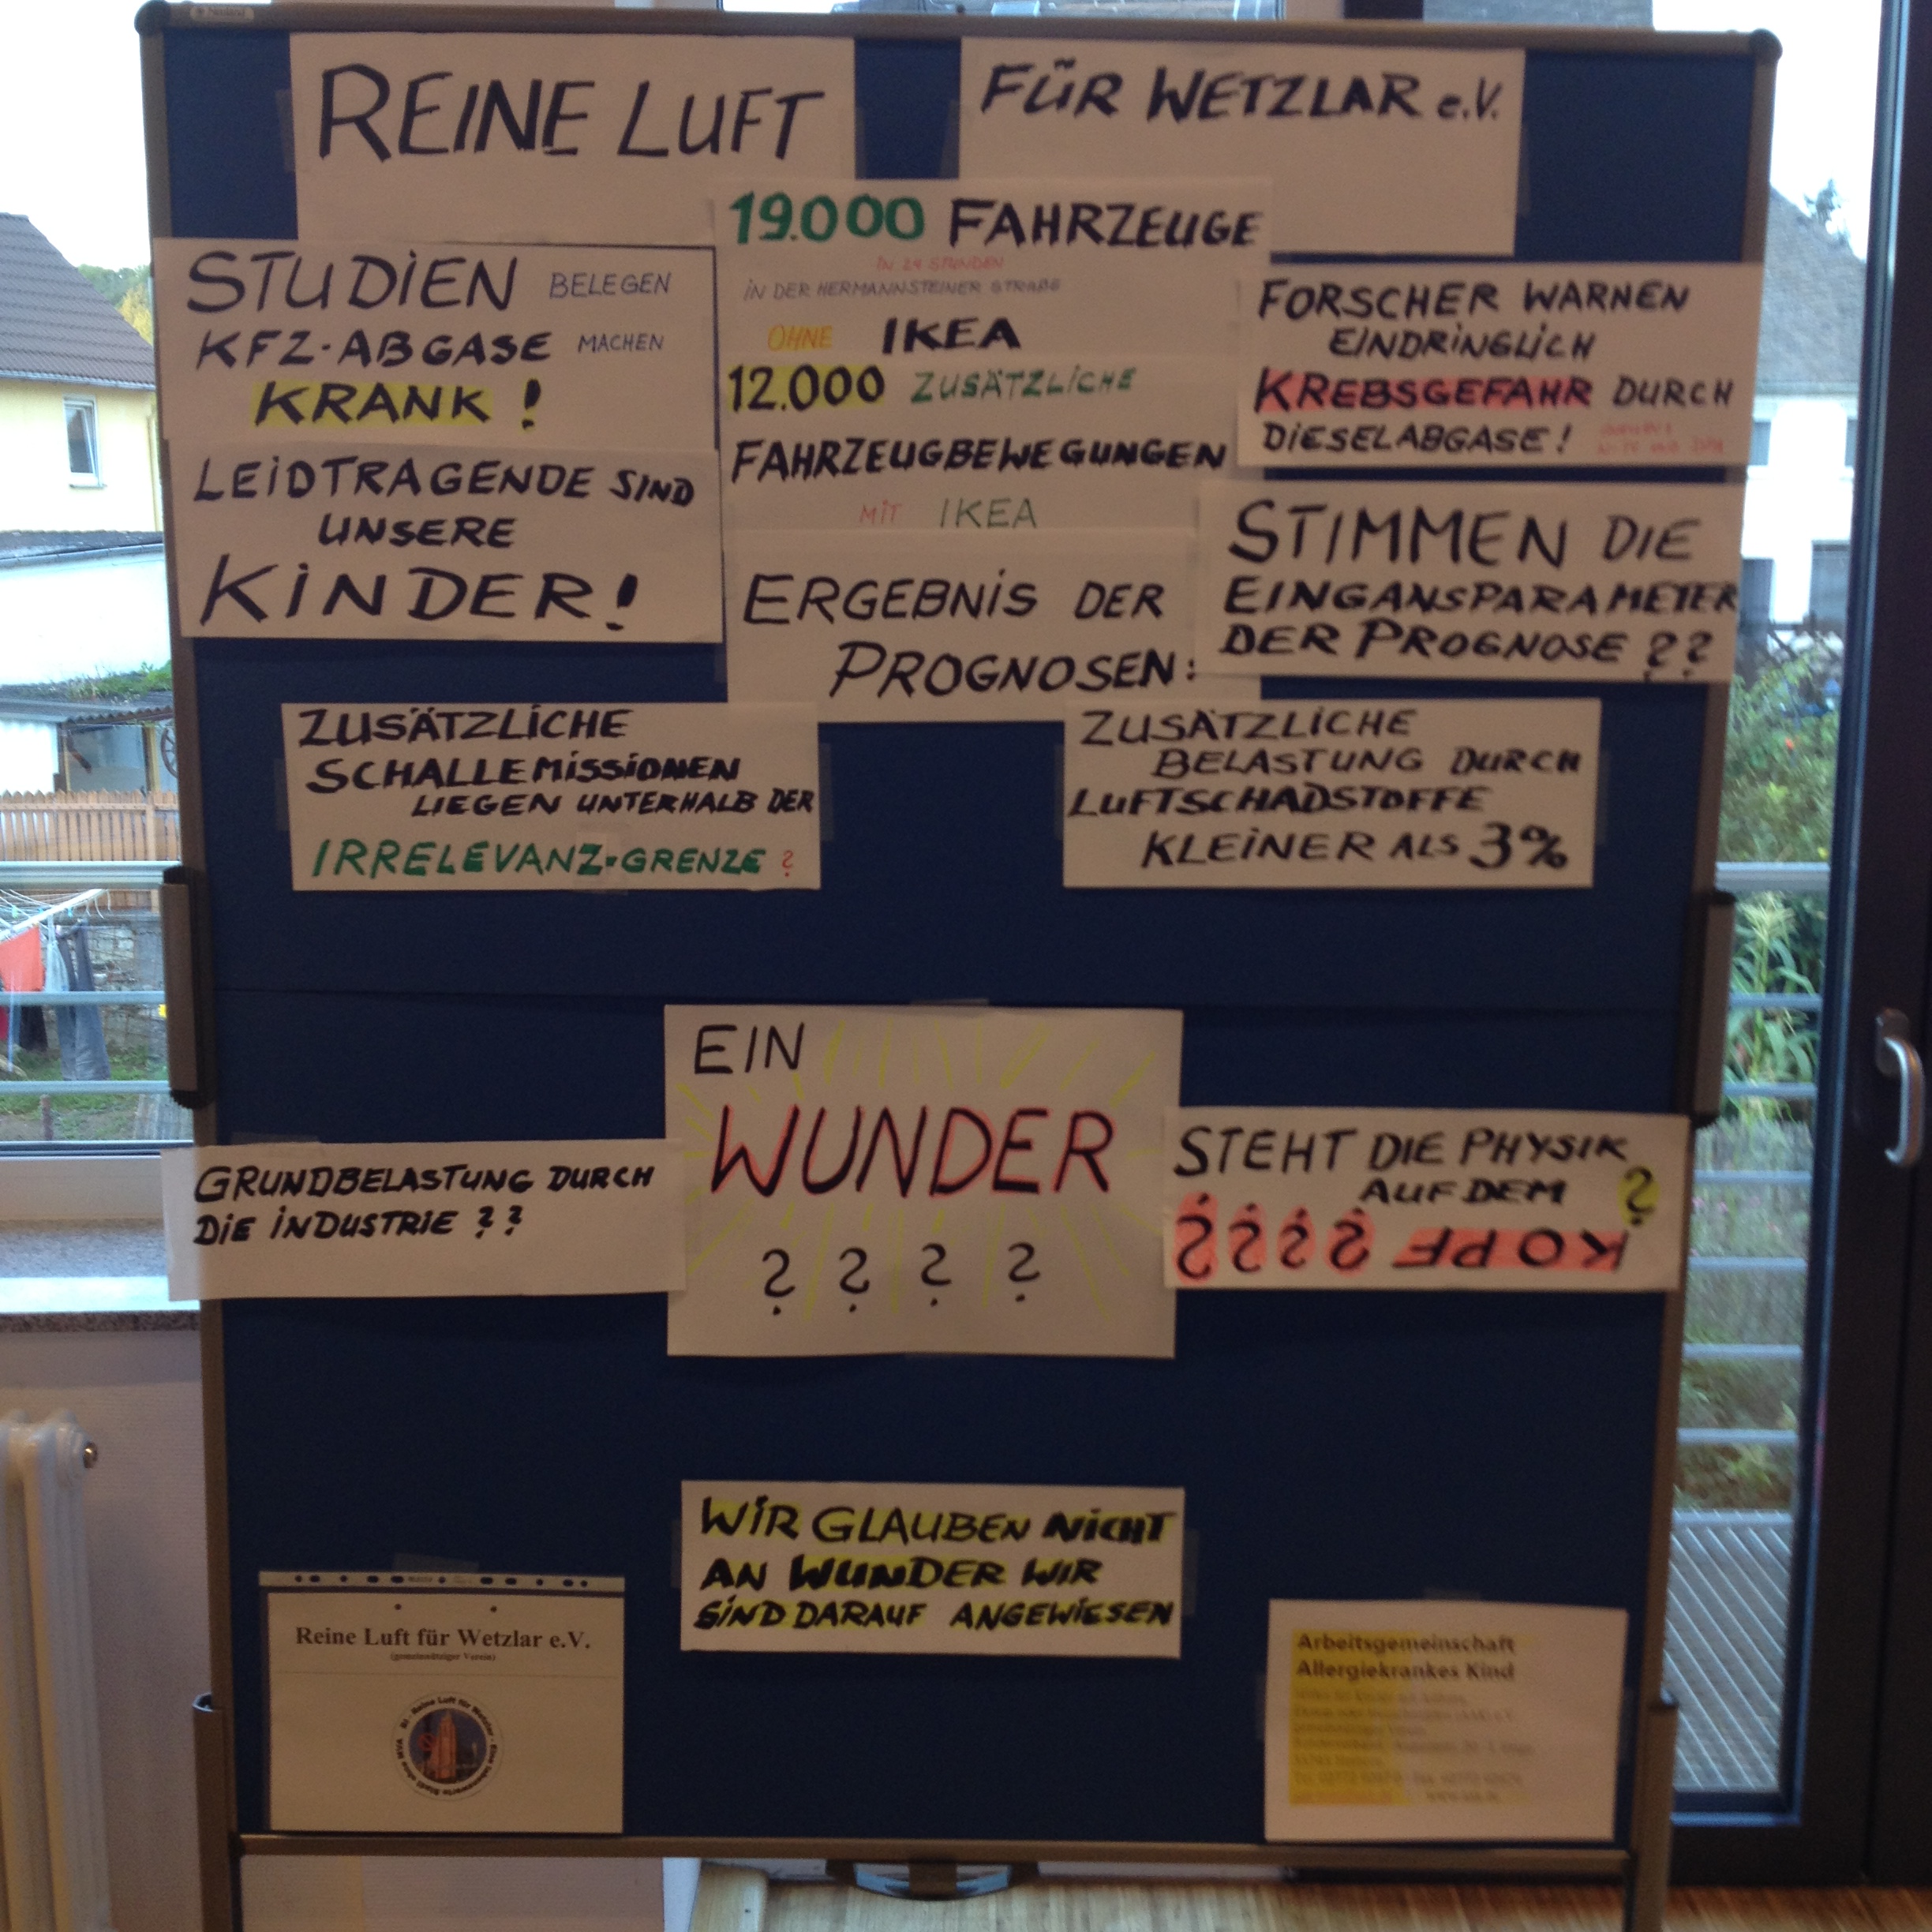 REINE LUFT
FÜR WETZLAR e.V.
19.000 FAHRZEUGE
IN 24 STUNDEN
IN DER HERMANNSTEINER STRAßE
OHNE IKEA
12.000 ZUSÄTZLICHE
FAHRZEUGBEWEGUNGEN
MIT IKEA
STUDIEN BELEGEN
KFZ-ABGASE MACHEN
KRANK!
FORSCHER WARNEN
EINDRINGLICH
KREBSGEFAHR DURCH
DIESELABGASE!
LEIDTRAGENDE SIND
UNSERE
KINDER!
ERGEBNIS DER
PROGNOSEN:
STIMMEN DIE
EINGANSPARAMETER
DER PROGNOSE ??
ZUSÄTZLICHE
SCHALLEMISSIONEN
LIEGEN UNTERHALB DER
IRRELEVANZ-GRENZE ?
ZUSÄTZLICHE
BELASTUNG DURCH
LUFTSCHADSTOFFE
KLEINER ALS 3%
EIN
WUNDER
? ? ? ?
GRUNDBELASTUNG DURCH
DIE INDUSTRIE ??
STEHT DIE PHYSIK
AUF DEM ?
KOPF ????
WIR GLAUBEN NICHT
AN WUNDER WIR
SIND DARAUF ANGEWIESEN
Reine Luft für Wetzlar e.V.
(gemeinnütziger Verein)
BI - Reine Luft für Wetzlar - Eine lebenswerte Stadt ohne MVA
Arbeitsgemeinschaft
Allergiekrankes Kind